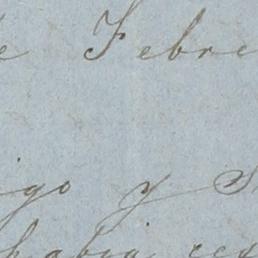 e Febre
igo y S
habia res